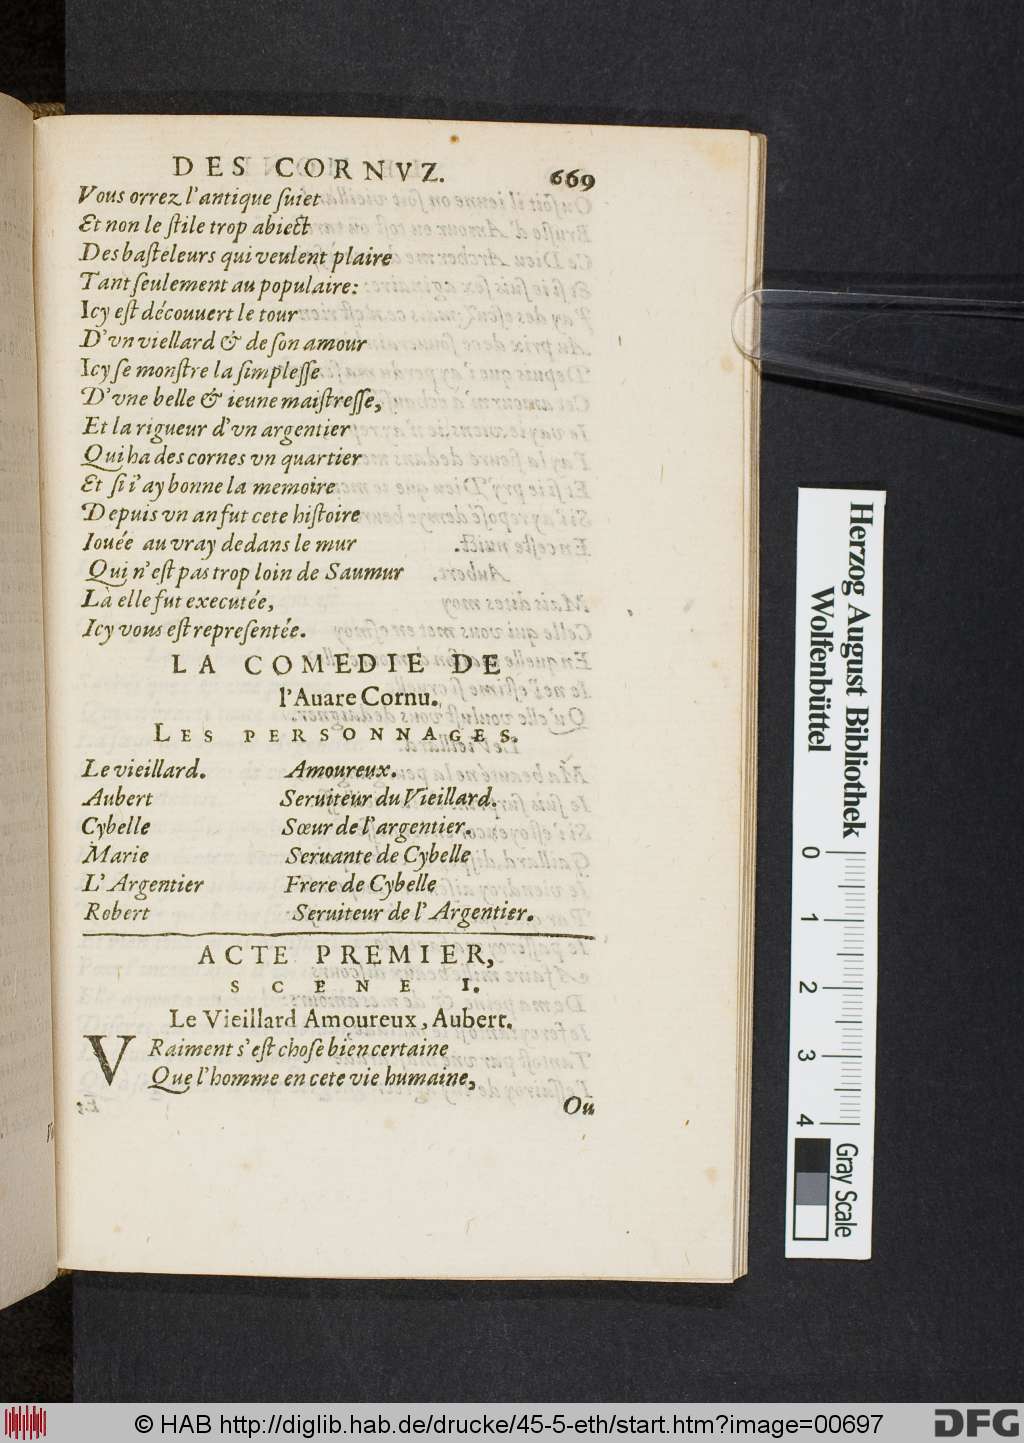 DES CORNVZ. 669
Vous orrez l'antique ſuiet
Et non le ſtile trop abiect
Des baſteleurs qui veulent plaire
Tant ſeulement au populaire:
Icy eſt découuert le tour
D'vn viellard & de ſon amour
Icy ſe monſtre la ſimpleſſe
D'vne belle & ieune maiſtreſſe,
Et la rigueur d'vn argentier
Qui ha des cornes vn quartier
Et ſi i'ay bonne la memoire
Depuis vn an fut cete hiſtoire
Iouée au vray dedans le mur
Qui n'eſt pas trop loin de Saumur
Là elle fut executée,
Icy vous eſt repreſentée.
LA COMEDIE DE
l'Auare Cornu.
LES PERSONNAGES.
Le vieillard. Amoureux.
Aubert Seruiteur du Vieillard.
Cybelle Sœur de l'argentier.
Marie Seruante de Cybelle
L'Argentier Frere de Cybelle
Robert Seruiteur de l'Argentier.
ACTE PREMIER,
SCENE I.
Le Vieillard Amoureux, Aubert.
VRaiment s'eſt choſe bien certaine
Que l'homme en cete vie humaine,
Ou
Herzog August Bibliothek
Wolfenbüttel
0 1 2 3 4
Gray Scale
© HAB http://diglib.hab.de/drucke/45-5-eth/start.htm?image=00697
DFG